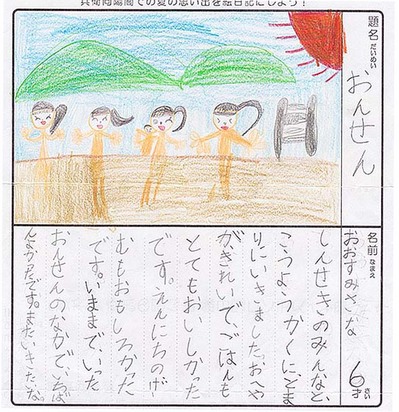 兵衛向陽閣での夏の思い出を絵日記にしよう!
題名 だいめい
おんせん
名前 なまえ
おおすみさな 6才 さい
しんせきのみんなと、
こうようかくにとま
りにいきました。おへや
がきれいで、ごはんも
とてもおいしかった
です。えんにちのげー
むもおもしろかった
です。いままでいった
おんせんのなかで、いちば
んよかったです。またいきたいな。